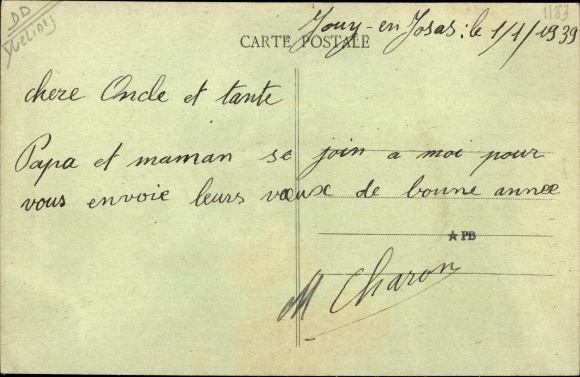 DD
Yvelines
1183
Jouy-en Josas: le 1/1/1939
CARTE POSTALE
chere Oncle et tante
Papa et maman se join a moi pour
vous envoie leurs vœux de bonne année
PB
M Charon